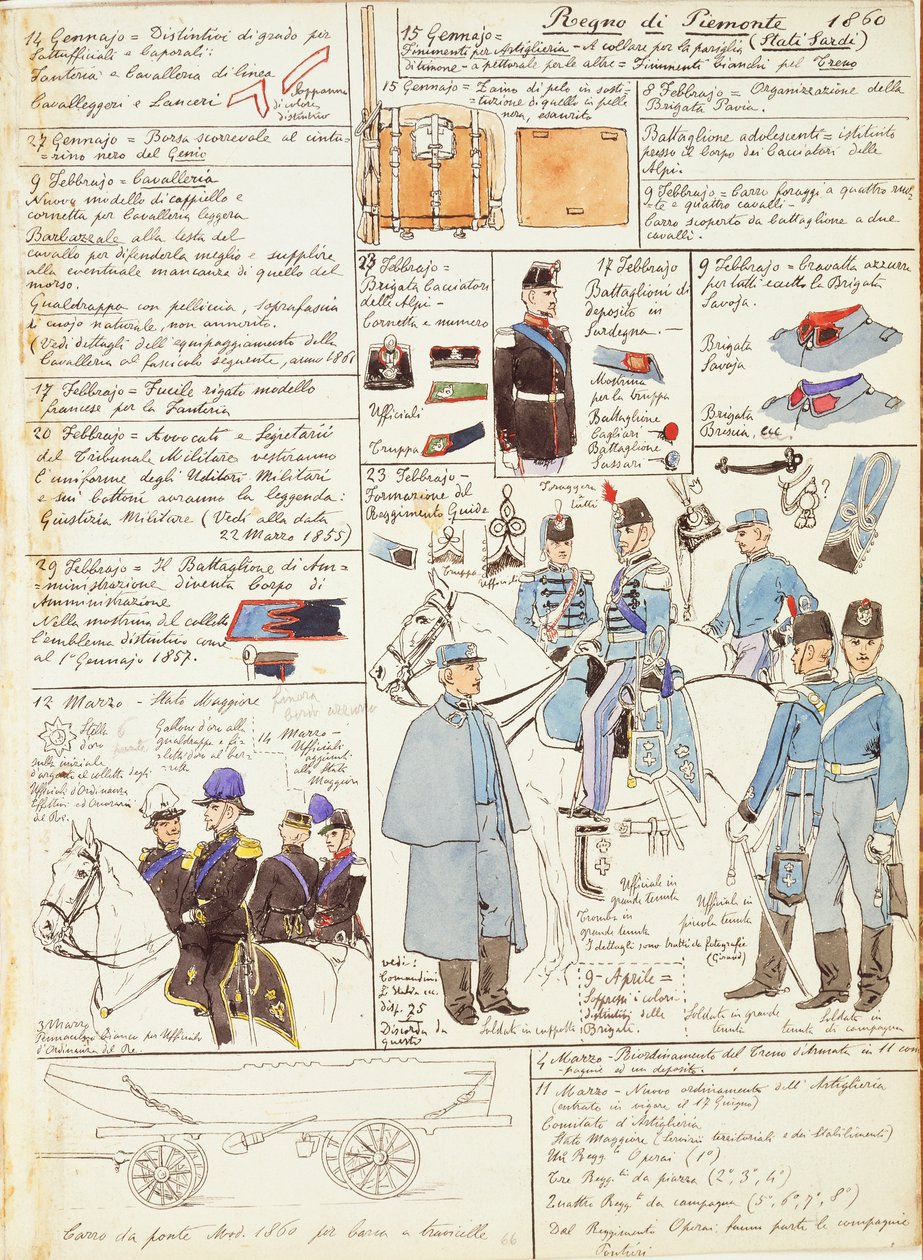 Regno di Piemonte 1860
(Stati Sardi)
14 Gennajo = Distintivi di grado per
Sottufficiali e Caporali:
Fanteria e Cavalleria di linea
Cavalleggeri e Lancieri
di colore
distintivo
27 Gennajo = Borsa scorrevole al cintu-
=rino nero del Genio
9 Febbrajo = Cavalleria
Nuovo modello di cappiello e
cornetta per Cavalleria leggera
Barbazzale alla testa del
cavallo per difenderla meglio e supplire
alla eventuale mancanza di quello del
morso.
Gualdrappa con pelliccia, soprafascia
cuojo naturale, non annerito.
(Vedi dettagli dell'equipaggiamento della
Cavalleria al fascicolo seguente, anno 1861
17 Febbrajo = Fucile rigato modello
francese per la Fanteria
20 Febbrajo = Avvocati e Segretarii
del Tribunale Militare vestiranno
l'uniforme degli Uditori Militari
e sui bottoni avranno la leggenda:
Giustizia Militare (Vedi alla data
22 Marzo 1855)
29 Febbrajo = Il Battaglione di Am-
=ministrazione diventa Corpo di
Amministrazione
Nella mostrina del colletto
l'emblema distintivo come
al 1° Gennajo 1857.
15 Gennajo =
Finimenti per Artiglieria - A collare per la pariglia
di timone - a pettorale per le altre = Finimenti bianchi pel Treno
15 Gennajo = Zaino di pelo in sosti-
=tuzione di quello in pelle
nera, esaurito
8 Febbrajo = Organizzazione della
Brigata Pavia.
Battaglione adolescenti = istituito
presso il Corpo dei Cacciatori delle
Alpi.
9 Febbrajo = Carro foraggi a quattro ruo-
te e quattro cavalli -
Carro scoperto da battaglione a due
cavalli.
23 Febbrajo =
Brigata Cacciatori
delle Alpi -
Cornetta e numero
Ufficiali
Truppa
17 Febbrajo
Battaglioni di
deposito in
Sardegna. -
Mostrina
per la truppa
Battaglione
Cagliari
Battaglione
Sassari
9 Febbrajo = Cravatta azzurra
per tutti eccetto la Brigata
Savoja.
Brigata
Savoja
Brigata
Brescia, ecc.
23 Febbrajo -
Formazione del
Reggimento Guide
Foraggera
a tutti
Truppa
Ufficiali
?
12 Marzo - Stato Maggiore
Stella
d'oro
sulle iniziale
d'argento al colletto degli
Ufficiali d'Ordinanza
Effettivi ed Onorari
del Re.
Galloni d'oro alla
gualdrappa e fi-
letti d'oro al ber-
retto
14 Marzo -
Ufficiali
aggiunti
allo Stato
Maggiore
3 Marzo
Pennacchio bianco per Ufficiali
d'Ordinanza del Re.
vedi:
Comandini
L'Italia ecc.
disp. 75
Discorda da
questo
Soldato in cappotto
Ufficiale in
grande tenuta
Tromba in
grande tenuta
Ufficiale in
piccola tenuta
I dettagli sono tratti da fotografie
(Giraud)
9 - Aprile =
Soppressi i colori
distintivi delle
Brigate.
Soldato in grande
tenuta
Soldato in
tenuta di campagna
4 Marzo - Riordinamento del Treno d'Armata in 11 com
pagnie ed un deposito.
11 Marzo - Nuovo ordinamento dell'Artiglieria
(entrato in vigore il 17 Giugno)
Comitato d'Artiglieria
Stato Maggiore (Servizi territoriali e dei Stabilimenti)
Un Regg.to Operai (1°)
Tre Regg.ti da piazza (2°, 3°, 4°)
Quattro Regg.ti da campagna (5°, 6°, 7°, 8°)
Dal Reggimento Operai fanno parte le compagnie
Pontieri
Carro da ponte Mod. 1860 per barca a travicelle
66